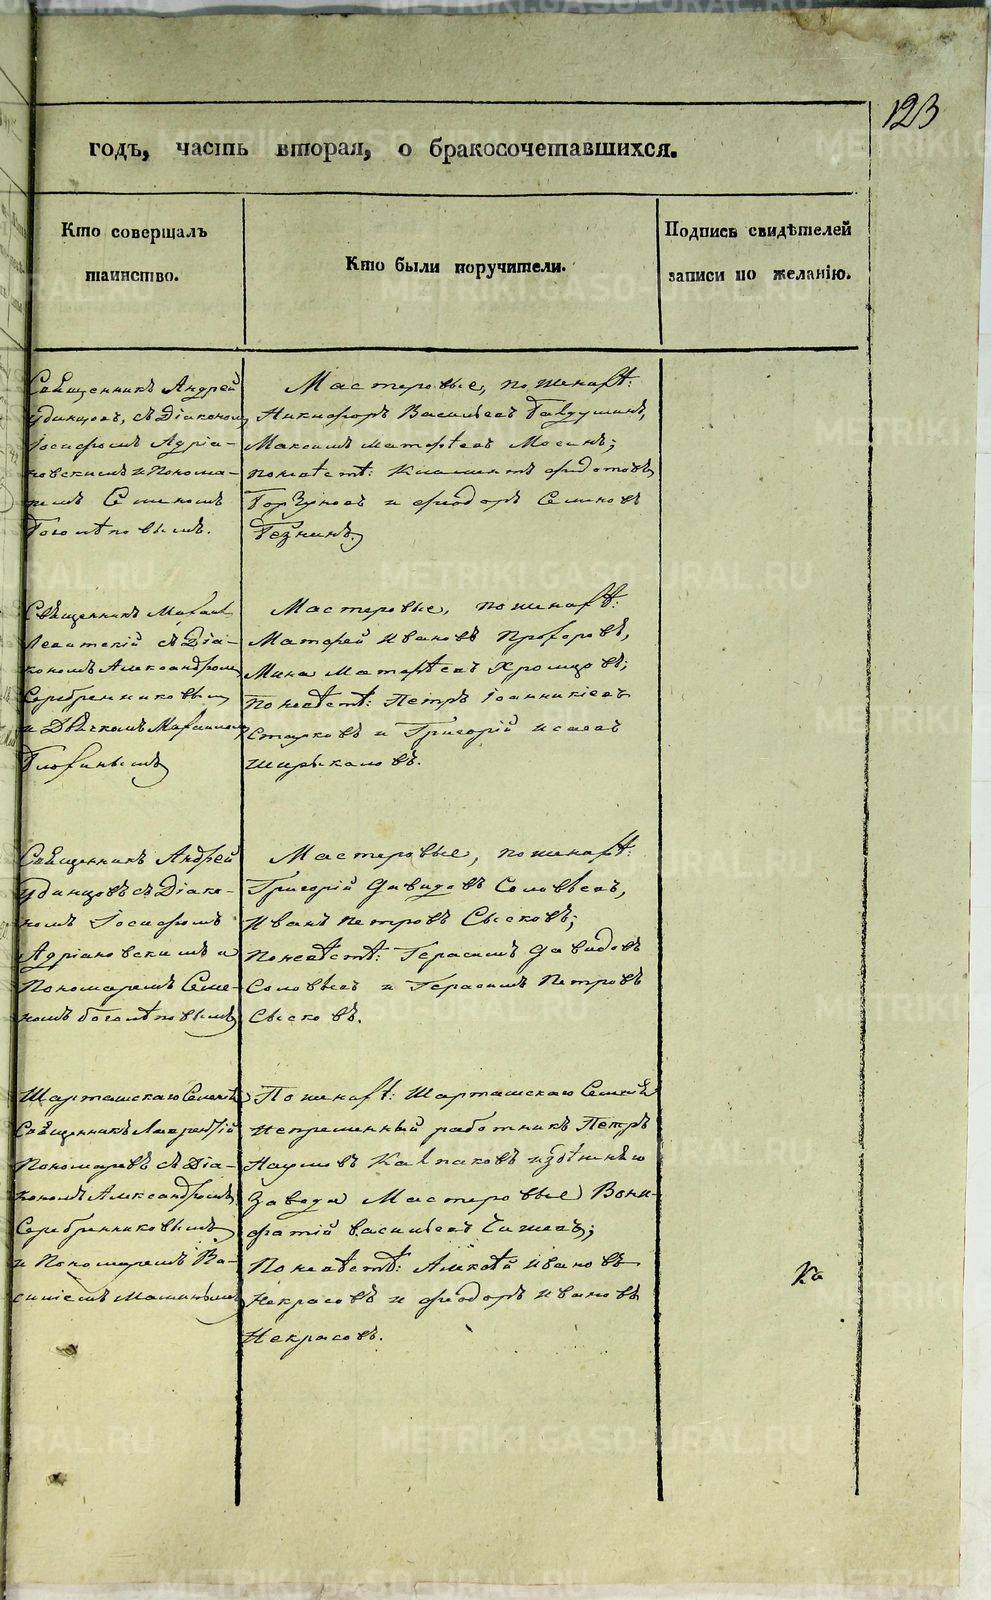 123
годъ, часть вторая, о бракосочетавшихся.
Кто совершалъ
таинство.
Кто были поручители.
Подпись свидѣтелей
записи по желанію.
Священникъ Андрей
Удинцовъ, съ Діакономъ
Іосифомъ Адріа-
новскимъ и Понома-
ремъ Семеномъ
Боголѣповымъ.
Мастеровые, по жених:
Никифоръ Васильевъ
Максимъ Матфѣевъ Мосинъ;
по невѣстѣ: Климентъ Федотовъ
и Федоръ Семеновъ
Священникъ Михаил
Левитскій съ Діа-
кономъ Александромъ
Серебренниковым
и Дьячкомъ
Мастеровые, по жених:
Матфей Ивановъ Прохоровъ,
Мина Матфѣевъ Хромцовъ;
По невѣстѣ: Петръ Іоанникіевъ
Старковъ и Григорій Исаевъ
Ширыкаловъ.
Священникъ Андрей
Удинцовъ съ Діако-
номъ Іосифомъ
Адріановскимъ и
Пономаремъ Семе-
номъ Боголѣповымъ
Мастеровые, по жених:
Григорій Давидовъ Соловьевъ,
Иванъ Петровъ Сысковъ;
По невѣстѣ: Герасимъ Давидовъ
Соловьевъ и Герасимъ Петровъ
Сысковъ.
Шарташскаго Селенія
Священникъ Лаврентій
Пономаревъ съ Діа-
кономъ Александромъ
Серебренниковымъ
и Пономаремъ Ва-
силіемъ
По жених: Шарташскаго Селенія
Непременный работникъ Петръ
Наумовъ Калпаковъ и здѣшняго
Завода Мастеровые Вони-
фатій Васильевъ
По невѣстѣ: Алексѣй Ивановъ
Некрасовъ и Федоръ Ивановъ
Некрасовъ.
METRIKI.GASO-URAL.RU